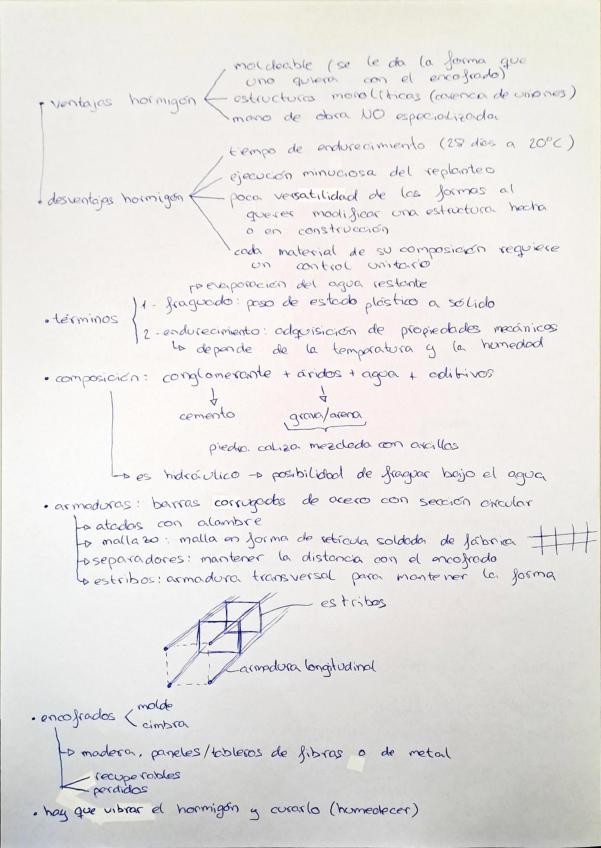 moldeable (se le da la forma que
uno quiera con el encofrado)
• ventajas hormigón
estructuras monolíticas (carencia de uniones)
mano de obra NO especializada
tiempo de endurecimiento (28 días a 20°C)
ejecución minuciosa del replanteo
• desventajas hormigón
poca versatilidad de las formas al
querer modificar una estructura hecha
o en construcción
cada material de su composición requiere
un control unitario
↱ evaporación del agua restante
1- fraguado: paso de estado plástico a sólido
• términos
2- endurecimiento: adquisición de propiedades mecánicas
↳ depende de la temperatura y la humedad
• composición: conglomerante + áridos + agua + aditivos
cemento grava/arena
piedra caliza mezclada con arcillas
→ es hidráulico → posibilidad de fraguar bajo el agua
• armaduras: barras corrugadas de acero con sección circular
→ atadas con alambre
→ mallazo: malla en forma de retícula soldada de fábrica
→ separadores: mantener la distancia con el encofrado
→ estribos: armadura transversal para mantener la forma
estribos
armadura longitudinal
molde
• encofrados
cimbra
→ madera, paneles/tableros de fibras o de metal
recuperables
perdidos
• hay que vibrar el hormigón y curarlo (humedecer)